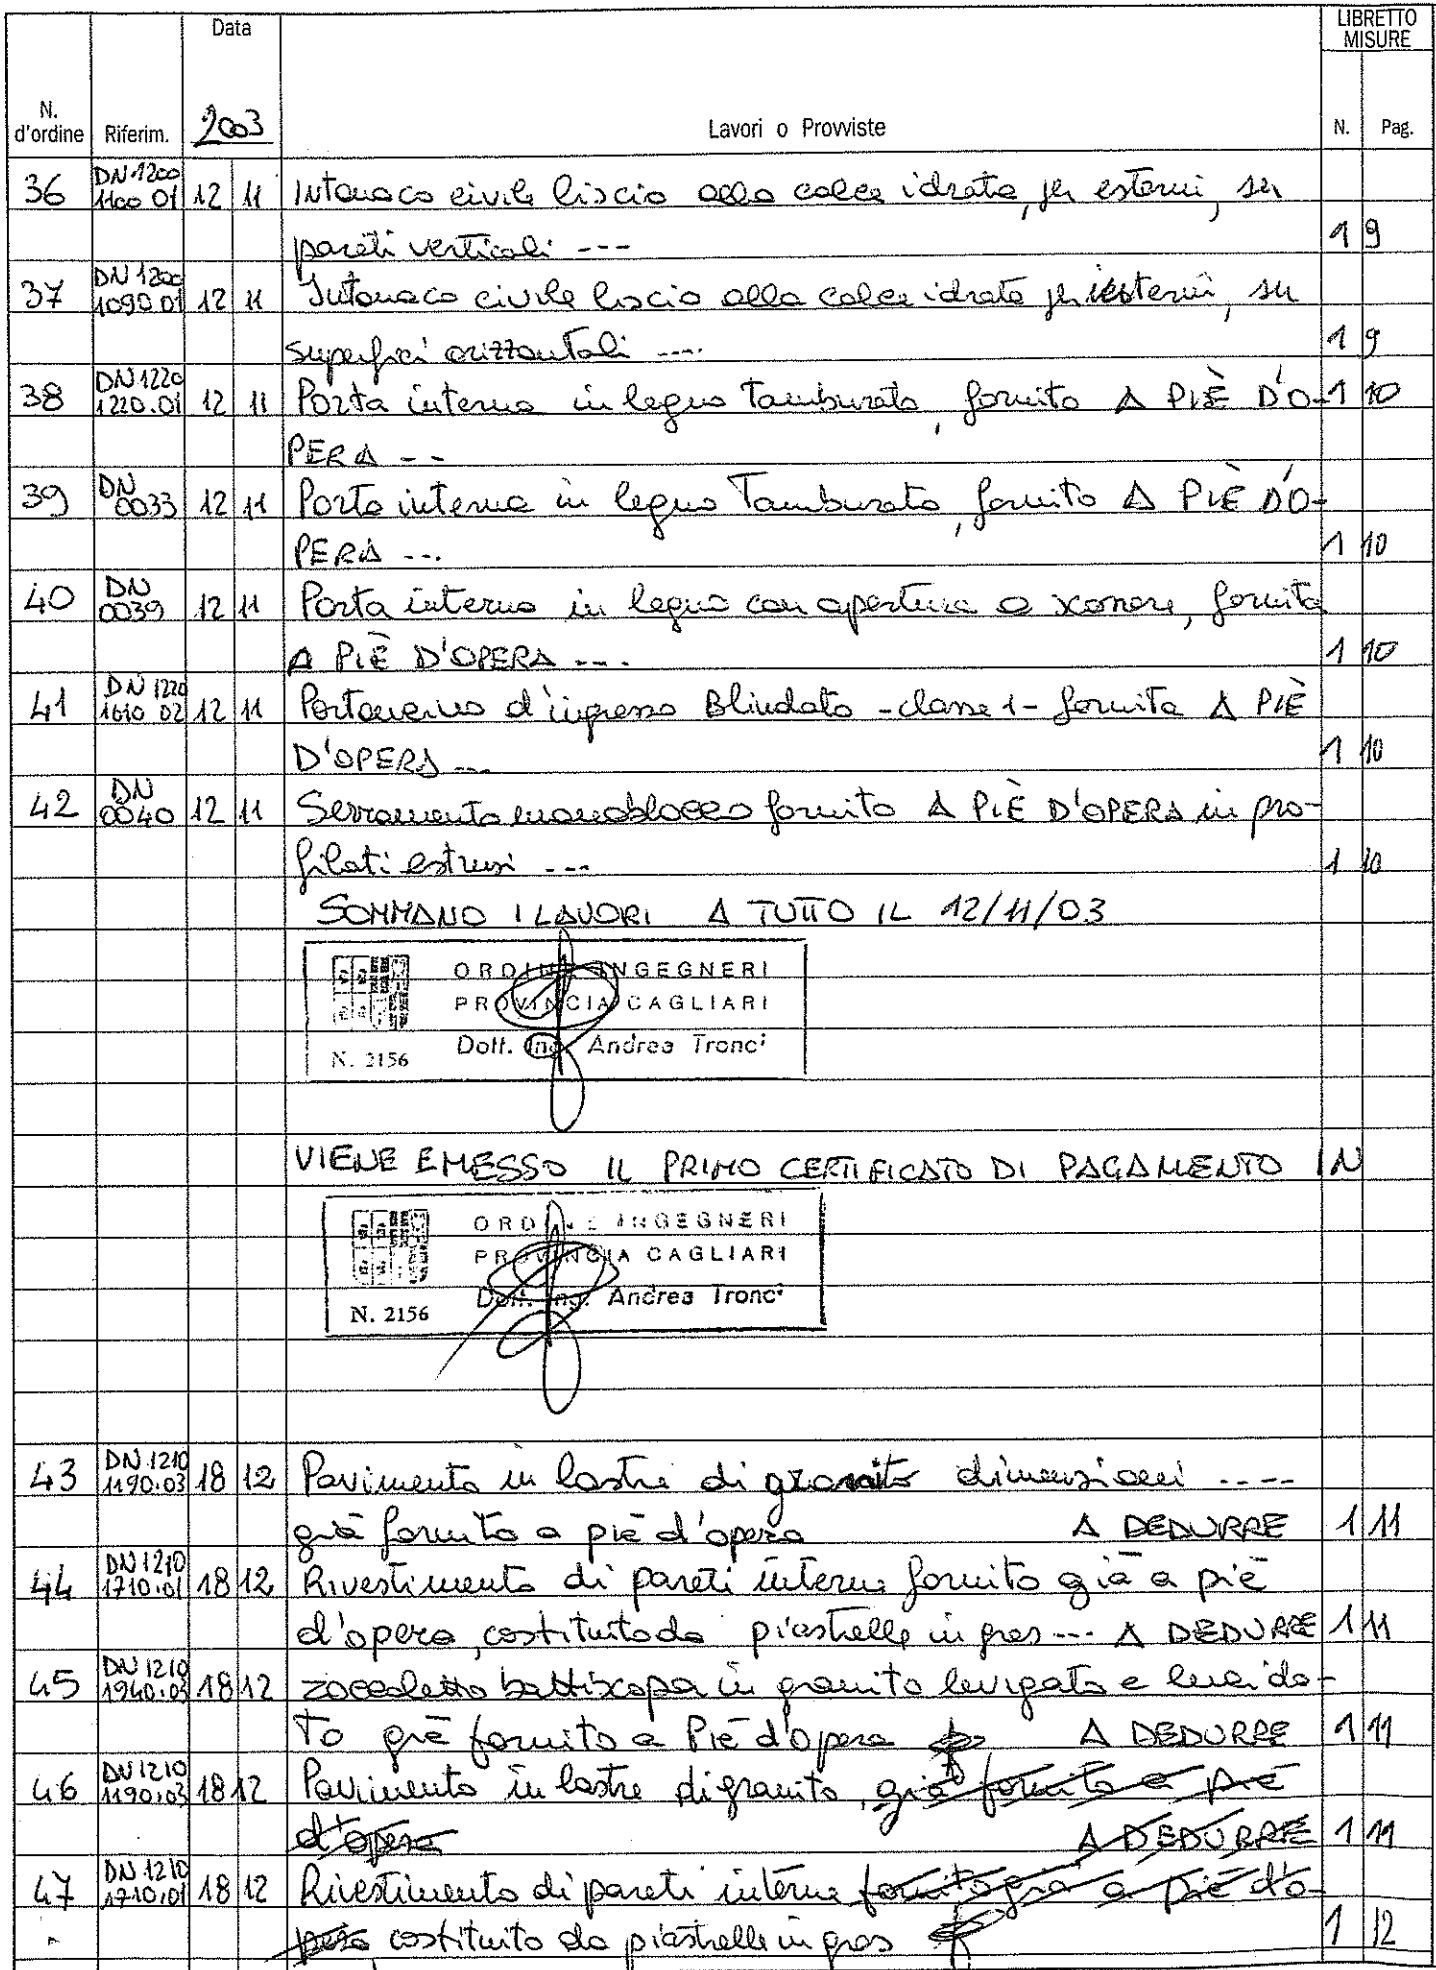 Data
LIBRETTO
MISURE
N.
d'ordine Riferim. 2003 Lavori o Provviste N. Pag.
DN 1200
36 1100 01 12 11 Intonaco civile liscio alla calce idrata, per esterni, su
pareti verticali --- 1 9
DN 1200
37 1090 01 12 11 Intonaco civile liscio alla calce idrata per esterni, su
superfici orizzontali ---- 1 9
DN 1220
38 1220.01 12 11 Porta interna in legno tamburato, fornito A PIÈ D'O- 1 10
PERA --
DN
39 0033 12 11 Porta interna in legno Tamburato, fornito A PIÈ D'O-
PERA --- 1 10
DN
40 0039 12 11 Porta interna in legno con apertura a , fornita
A PIÈ D'OPERA --- 1 10
DN 1220
41 1610 02 12 11 Portoncino d'ingresso Blindato - classe 1 - fornita A PIÈ
D'OPERA --- 1 10
DN
42 0040 12 11 Serramento monoblocco fornito A PIÈ D'OPERA in pro-
filati estrusi --- 1 10
SOMMANO I LAVORI A TUTTO IL 12/11/03
ORDINE INGEGNERI
PROVINCIA CAGLIARI
N. 2156 Dott. Ing. Andrea Tronci
VIENE EMESSO IL PRIMO CERTIFICATO DI PAGAMENTO IN
ORDINE INGEGNERI
PROVINCIA CAGLIARI
Dott. Ing. Andrea Tronci
N. 2156
DN 1210
43 1190.03 18 12 Pavimento in lastre di granito dimensioni ----
già fornito a piè d'opera A DEDURRE 1 11
DN 1210
44 1710.01 18 12 Rivestimento di pareti interne fornito già a piè
d'opera, costituito da piastrelle in gres --- A DEDURRE 1 11
DN 1210
45 1940.03 18 12 zoccoletto battiscopa in granito levigato e lucida-
to già fornito a Piè d'opera A DEDURRE 1 11
DN 1210
46 1190.03 18 12 Pavimento in lastre di granito, già fornito a piè
d'opera A DEDURRE 1 11
DN 1210
47 1710.01 18 12 Rivestimento di pareti interne fornito già a piè d'o-
pera costituito da piastrelle in gres 1 12